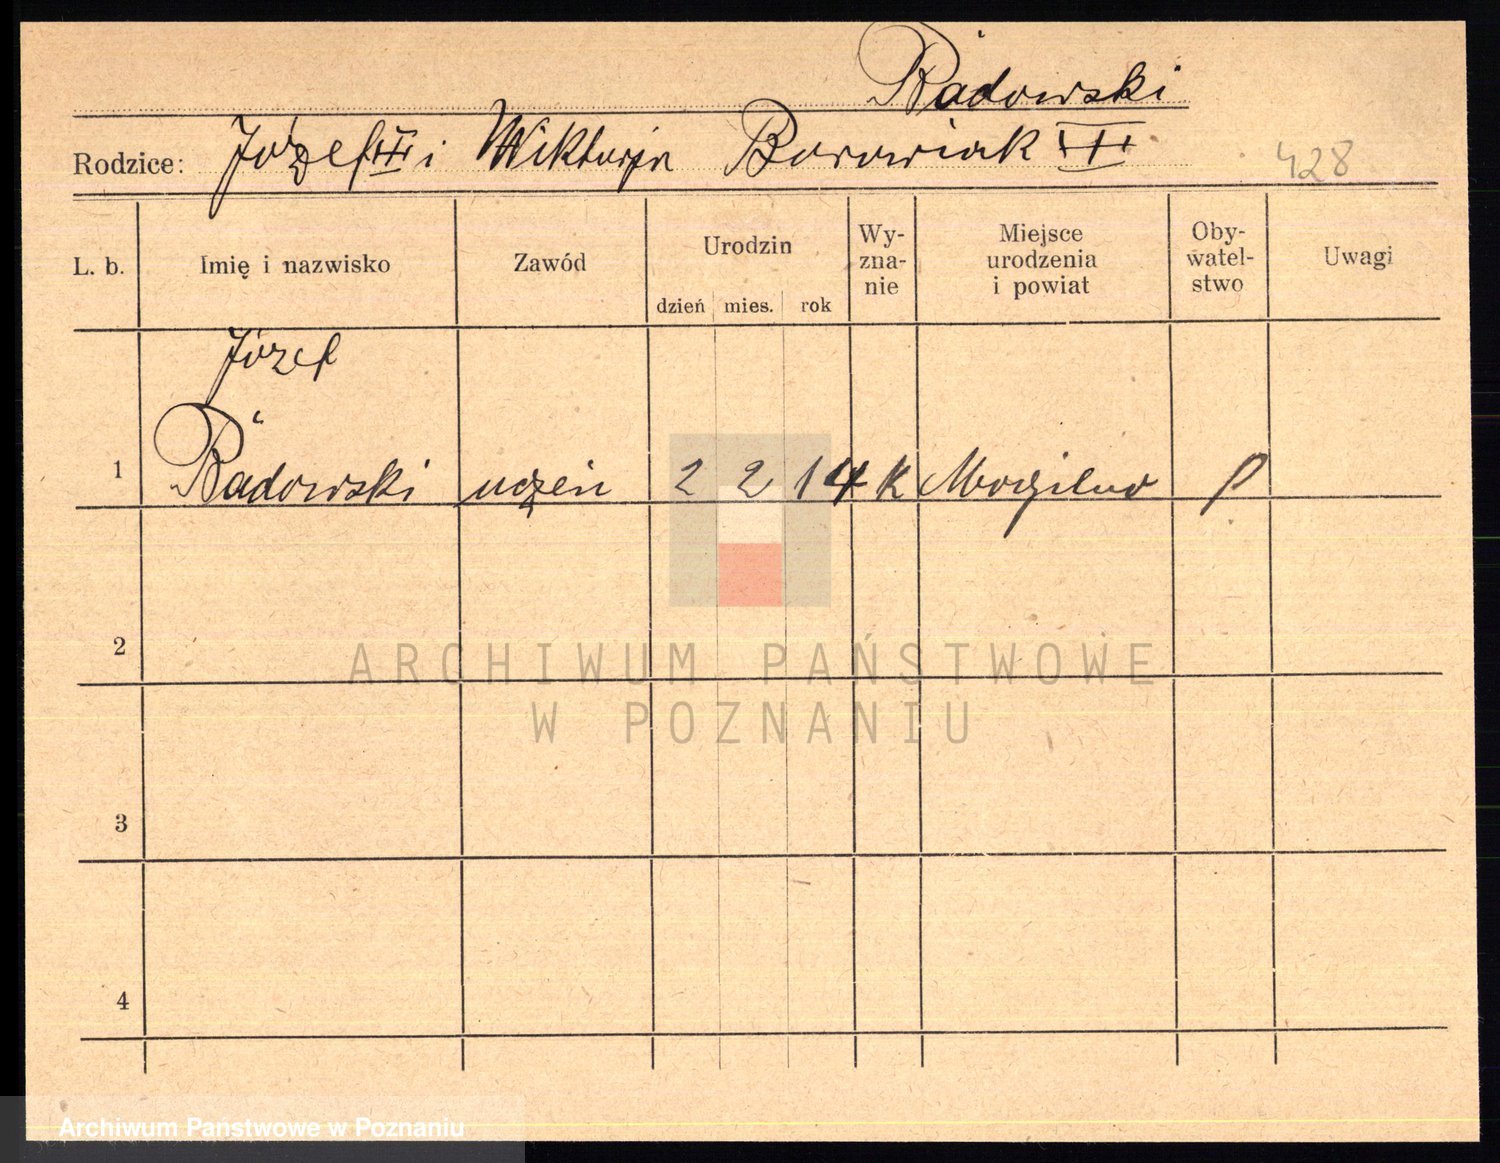 Radowski
Rodzice: Józef III i Wiktorja Borowiak III
428
L. b. Imię i nazwisko Zawód Urodzin dzień mies. rok Wy-zna-nie Miejsce urodzenia i powiat Oby-watel-stwo Uwagi
Józef
1 Radowski uczeń 2 2 14 k Mogilno P
2
ARCHIWUM PAŃSTWOWE
W POZNANIU
3
4
Archiwum Państwowe w Poznaniu